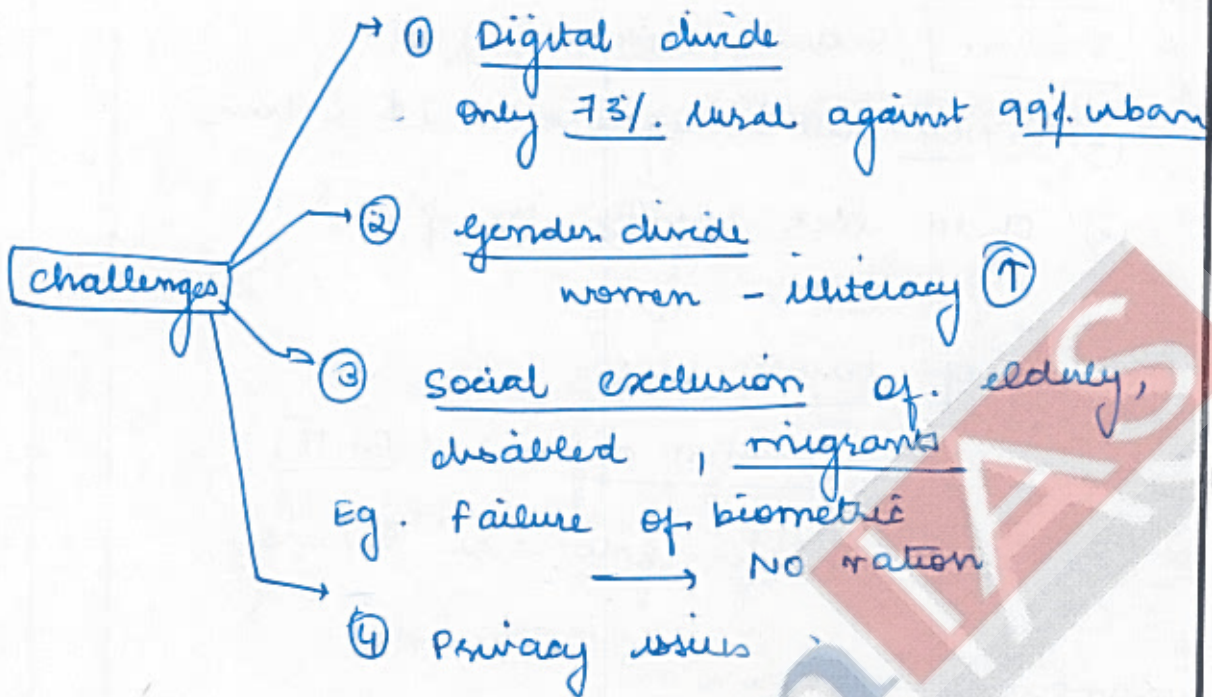 ① Digital divide
only 73%. rural against 99%. urban
② Gender divide
challenges
women - illiteracy ↑
③ Social exclusion of elderly,
disabled, migrants
Eg. Failure of biometric
→ NO ration
④ Privacy issues
IAS